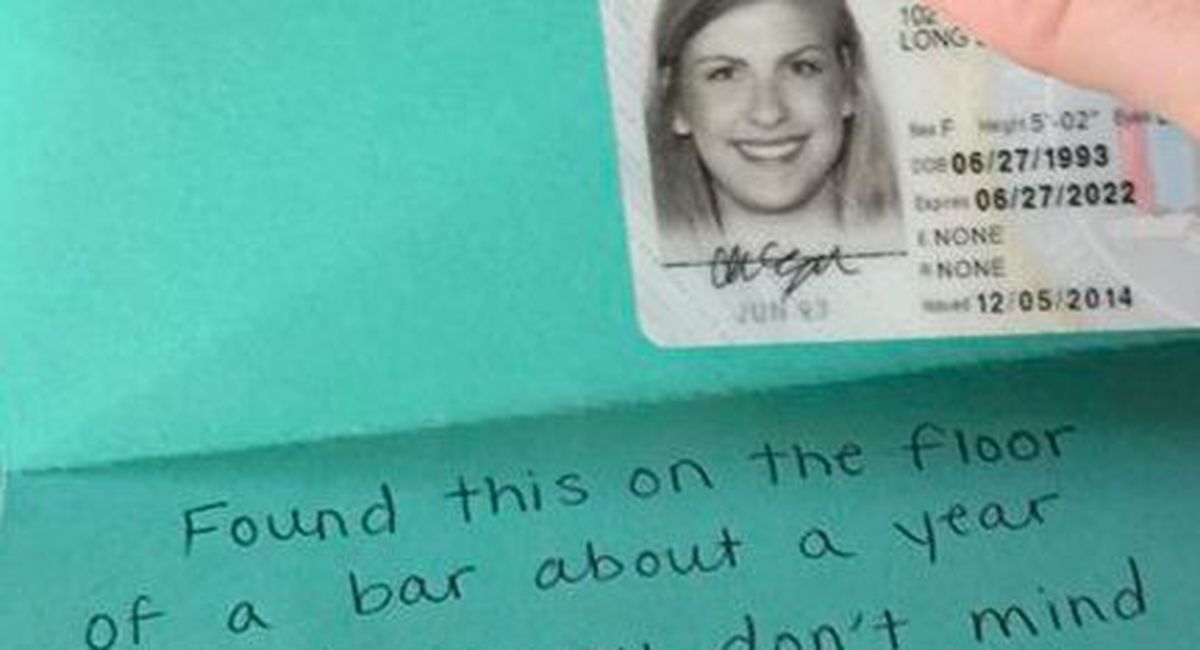 102
LONG
Sex F Height 5'-02" Eyes
DOB 06/27/1993
Expires 06/27/2022
E NONE
R NONE
Issued 12/05/2014
JUN 93
Found this on the floor
of a bar about a year
don't mind